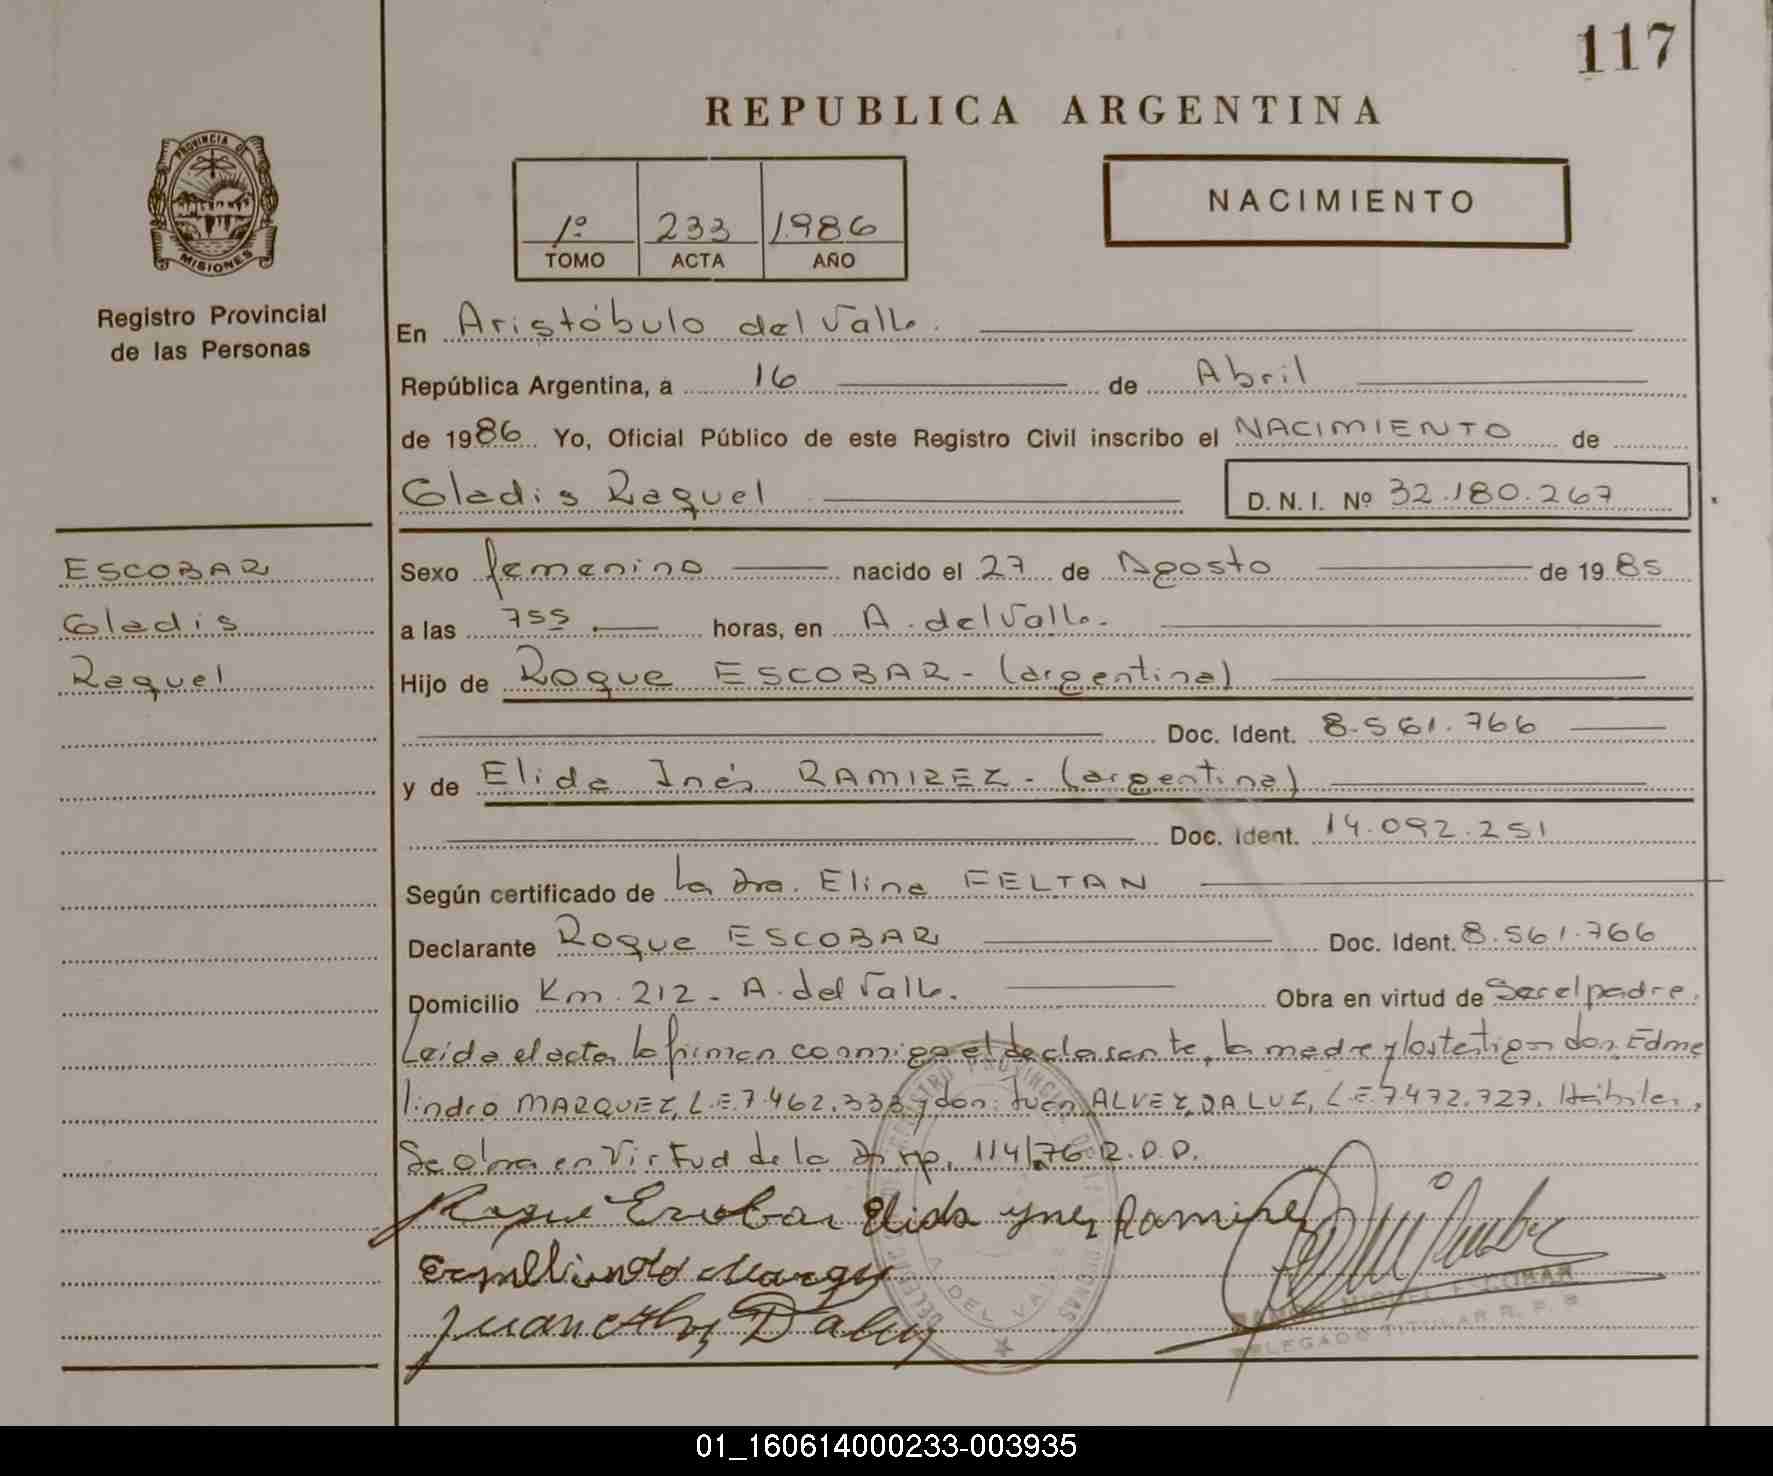 117
REPUBLICA ARGENTINA
PROVINCIA DE
MISIONES
Registro Provincial
de las Personas
1º 233 1986
TOMO ACTA AÑO
NACIMIENTO
En Aristóbulo del Valle.
República Argentina, a 16 de Abril
de 1986 Yo, Oficial Público de este Registro Civil inscribo el NACIMIENTO de
Gladis Raquel D. N. I. Nº 32.180.267
ESCOBAR
Gladis
Raquel
Sexo femenino nacido el 27 de Agosto de 19 85
a las 755 horas, en A. del Valle.
Hijo de Roque ESCOBAR - (argentina)
Doc. Ident. 8.561.766
y de Elida Inés RAMIREZ - (argentina)
Doc. Ident. 14.092.251
Según certificado de la Dra. Elina FELTAN
Declarante Roque ESCOBAR Doc. Ident. 8.561.766
Domicilio Km. 212 - A. del Valle. Obra en virtud de Ser el padre.
Leída el acta la firman conmigo el declarante, la madre y los testigos don: Edme
lindro MARQUEZ, L.E.7.462.333 y don: Juan ALVEZ DA LUZ, L.E.7472.727. Hábiles,
Se obra en Virtud de la Disp. 114/76 R.P.P.
Roque Escobar Elida ynez Ramirez
Juan Alvez Da luz
A. DEL VALLE
MIGUEL ESCOBAR
DELEGADO TITULAR R. P. P.
01_160614000233-003935